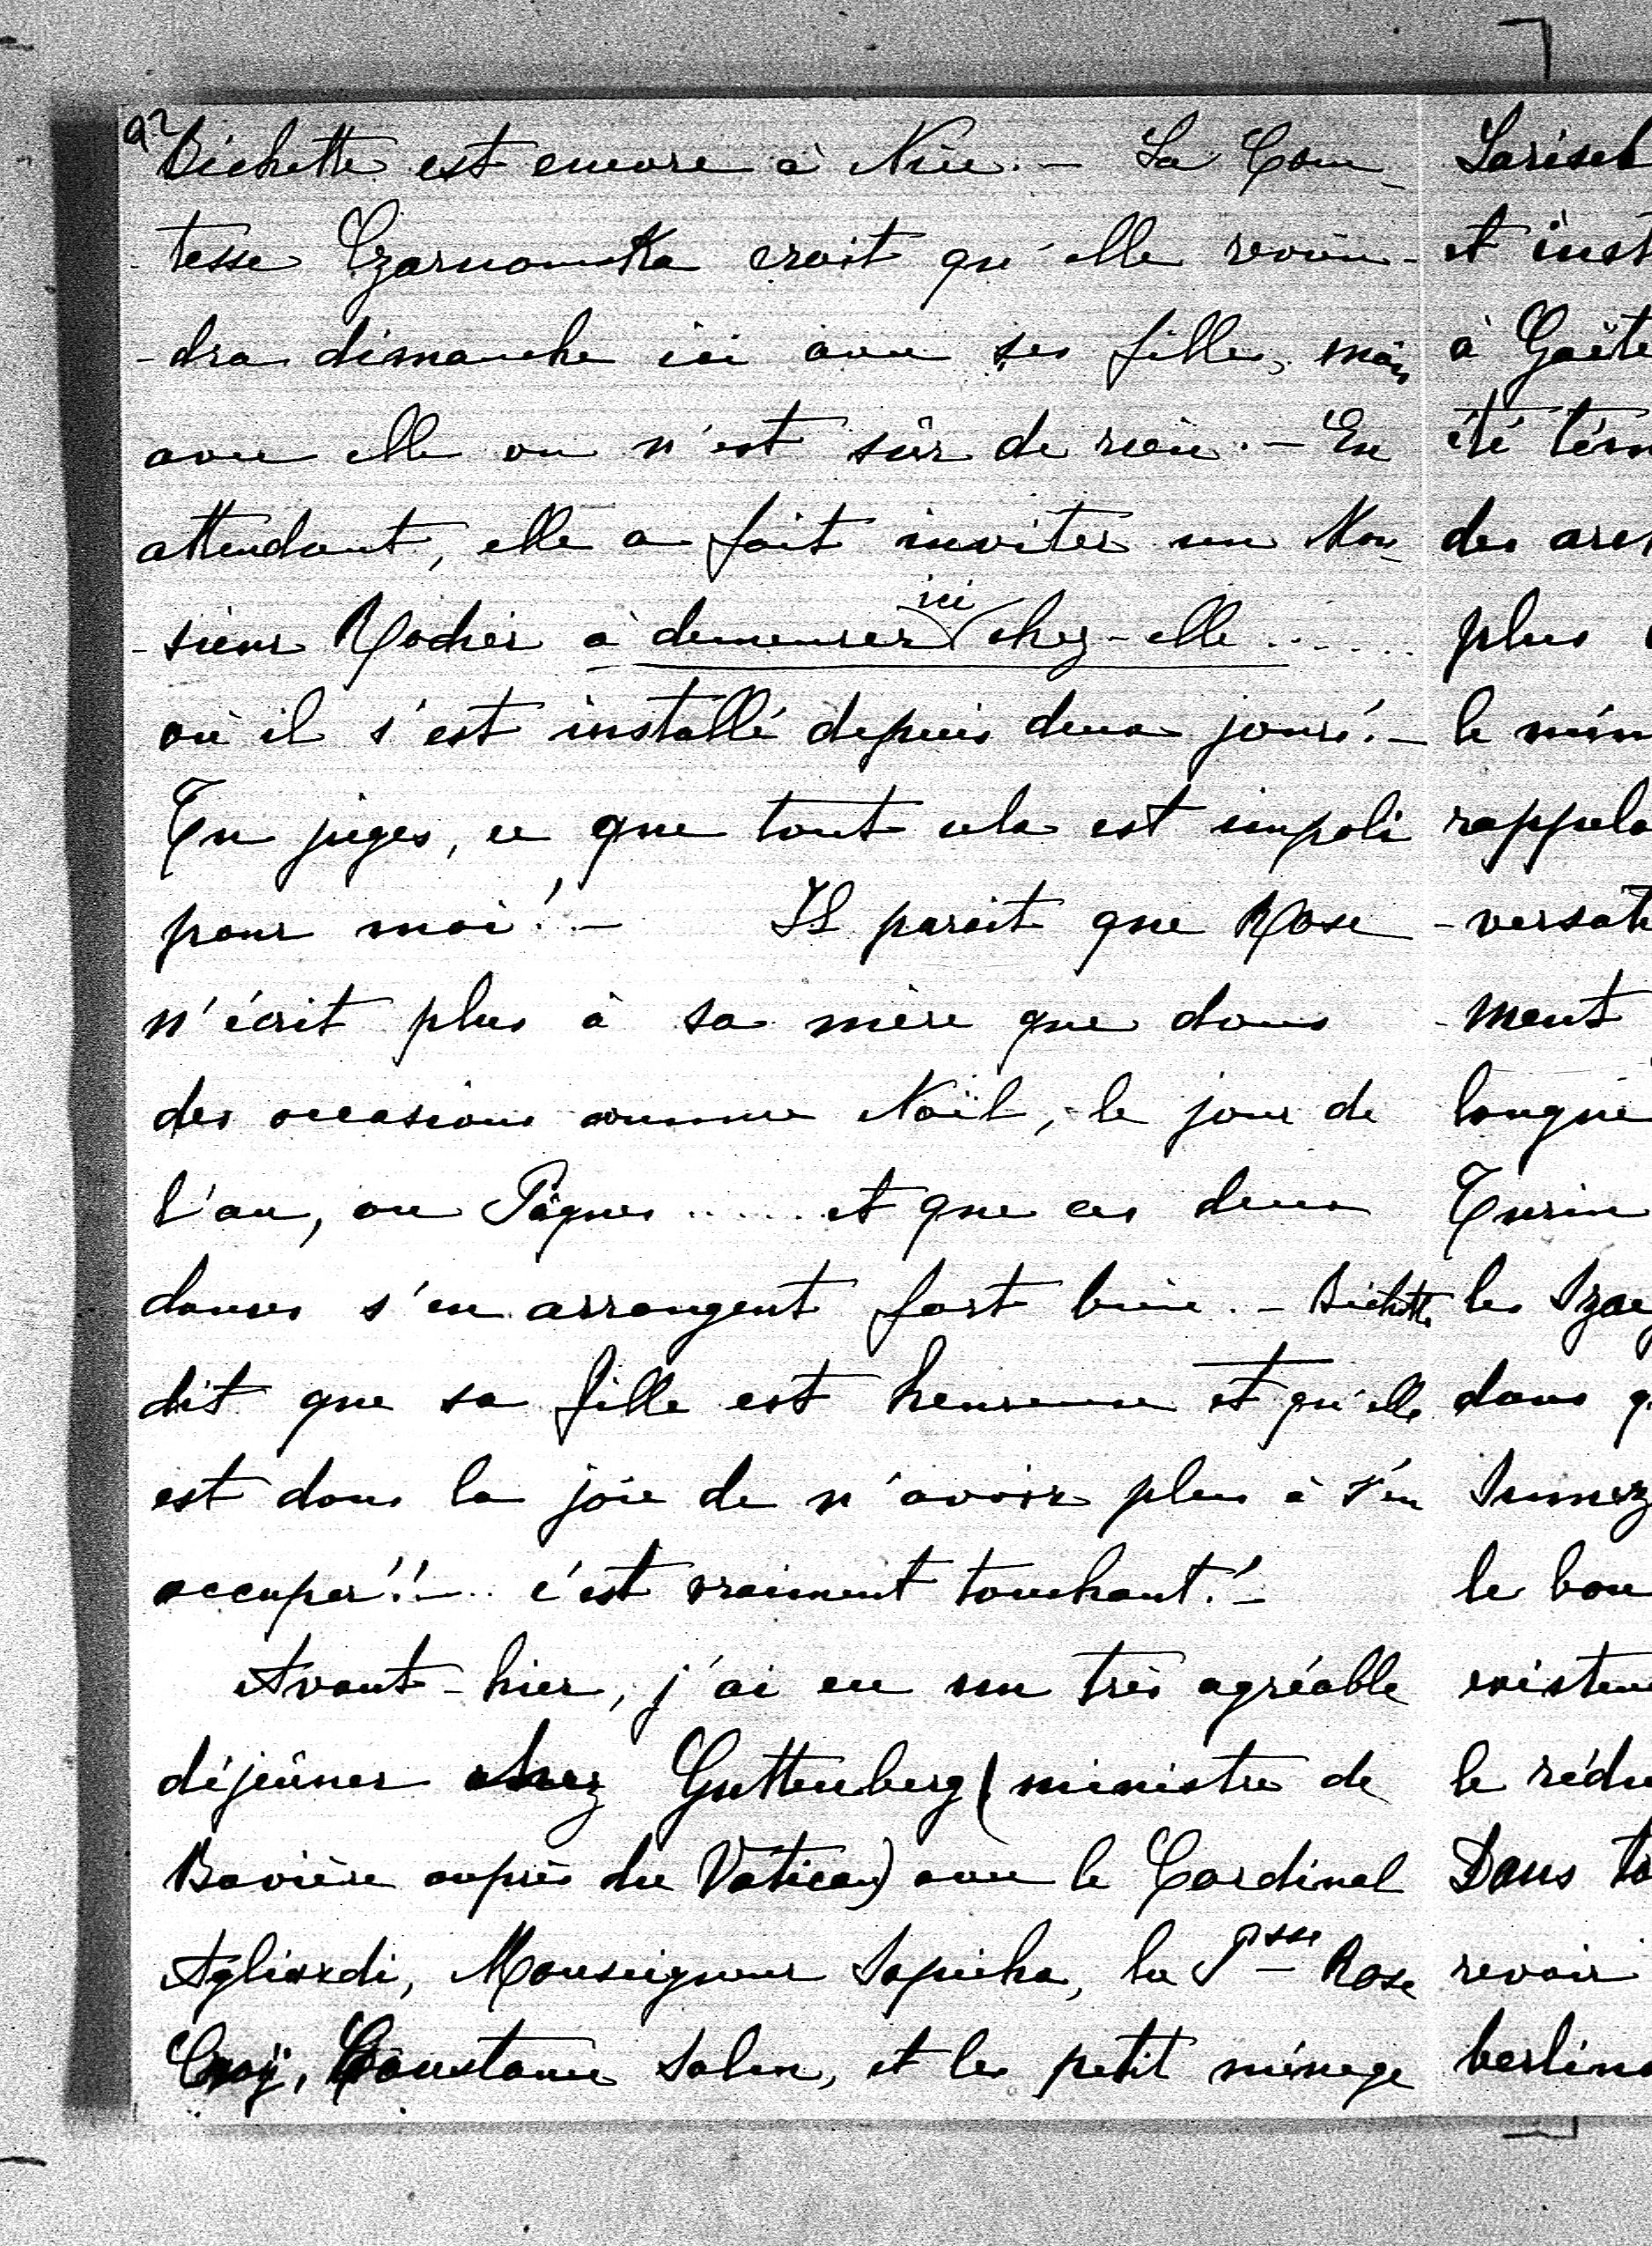 a2
Bichette est encore à Nice. – La Com-
tesse Czarnomska croit qu'elle revien-
-dra dimanche ici avec ses filles, mais
avec elle on n'est sûr de rien. – En
attendant, elle a fait inviter un Mon-
-sieur Rodier à demeurer ici chez-elle .....
où il s'est installé depuis deux jours! –
Tu juges, ce que tout cela est impoli
pour moi! – Il parait que Rose
n'écrit plus à sa mère que dans
des occasions comme Noël, le jour de
l'an, ou Pâques ..... et que ces deux
dames s'en arrangent fort bien. – Bichette
dit que sa fille est heureuse et qu'elle
est dans la joie de n'avoir plus à s'en
occuper!! – c'est vraiment touchant! –
Avant-hier, j'ai eu un très agréable
déjeûner chez Guttenberg (ministre de
Bavière auprès du Vatican) avec le Cardinal
Agliardi, Monseigneur Sapieha, la Psse Rose
Croÿ, Constance Salm, et le petit ménage
Larisch
et inst
à Gaëte
été tém
des
plus
le mêm
rappela
-versat
-ment
longue
Turin
les
dans q
le bon
le rédu
Dans to
revoir
berlino